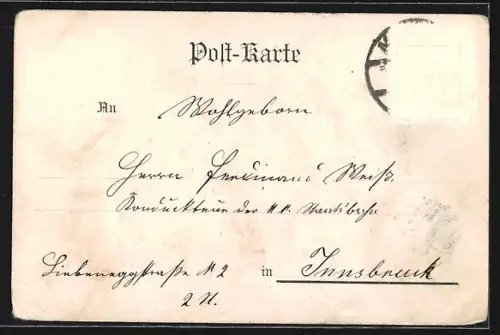 Post-Karte
An Wohlgeborn
Herrn Ferdinand Weiß.
Kondukteur der k.k. Staatsbahn
Liebeneggstraße N 2 in Innsbruck
2 St.